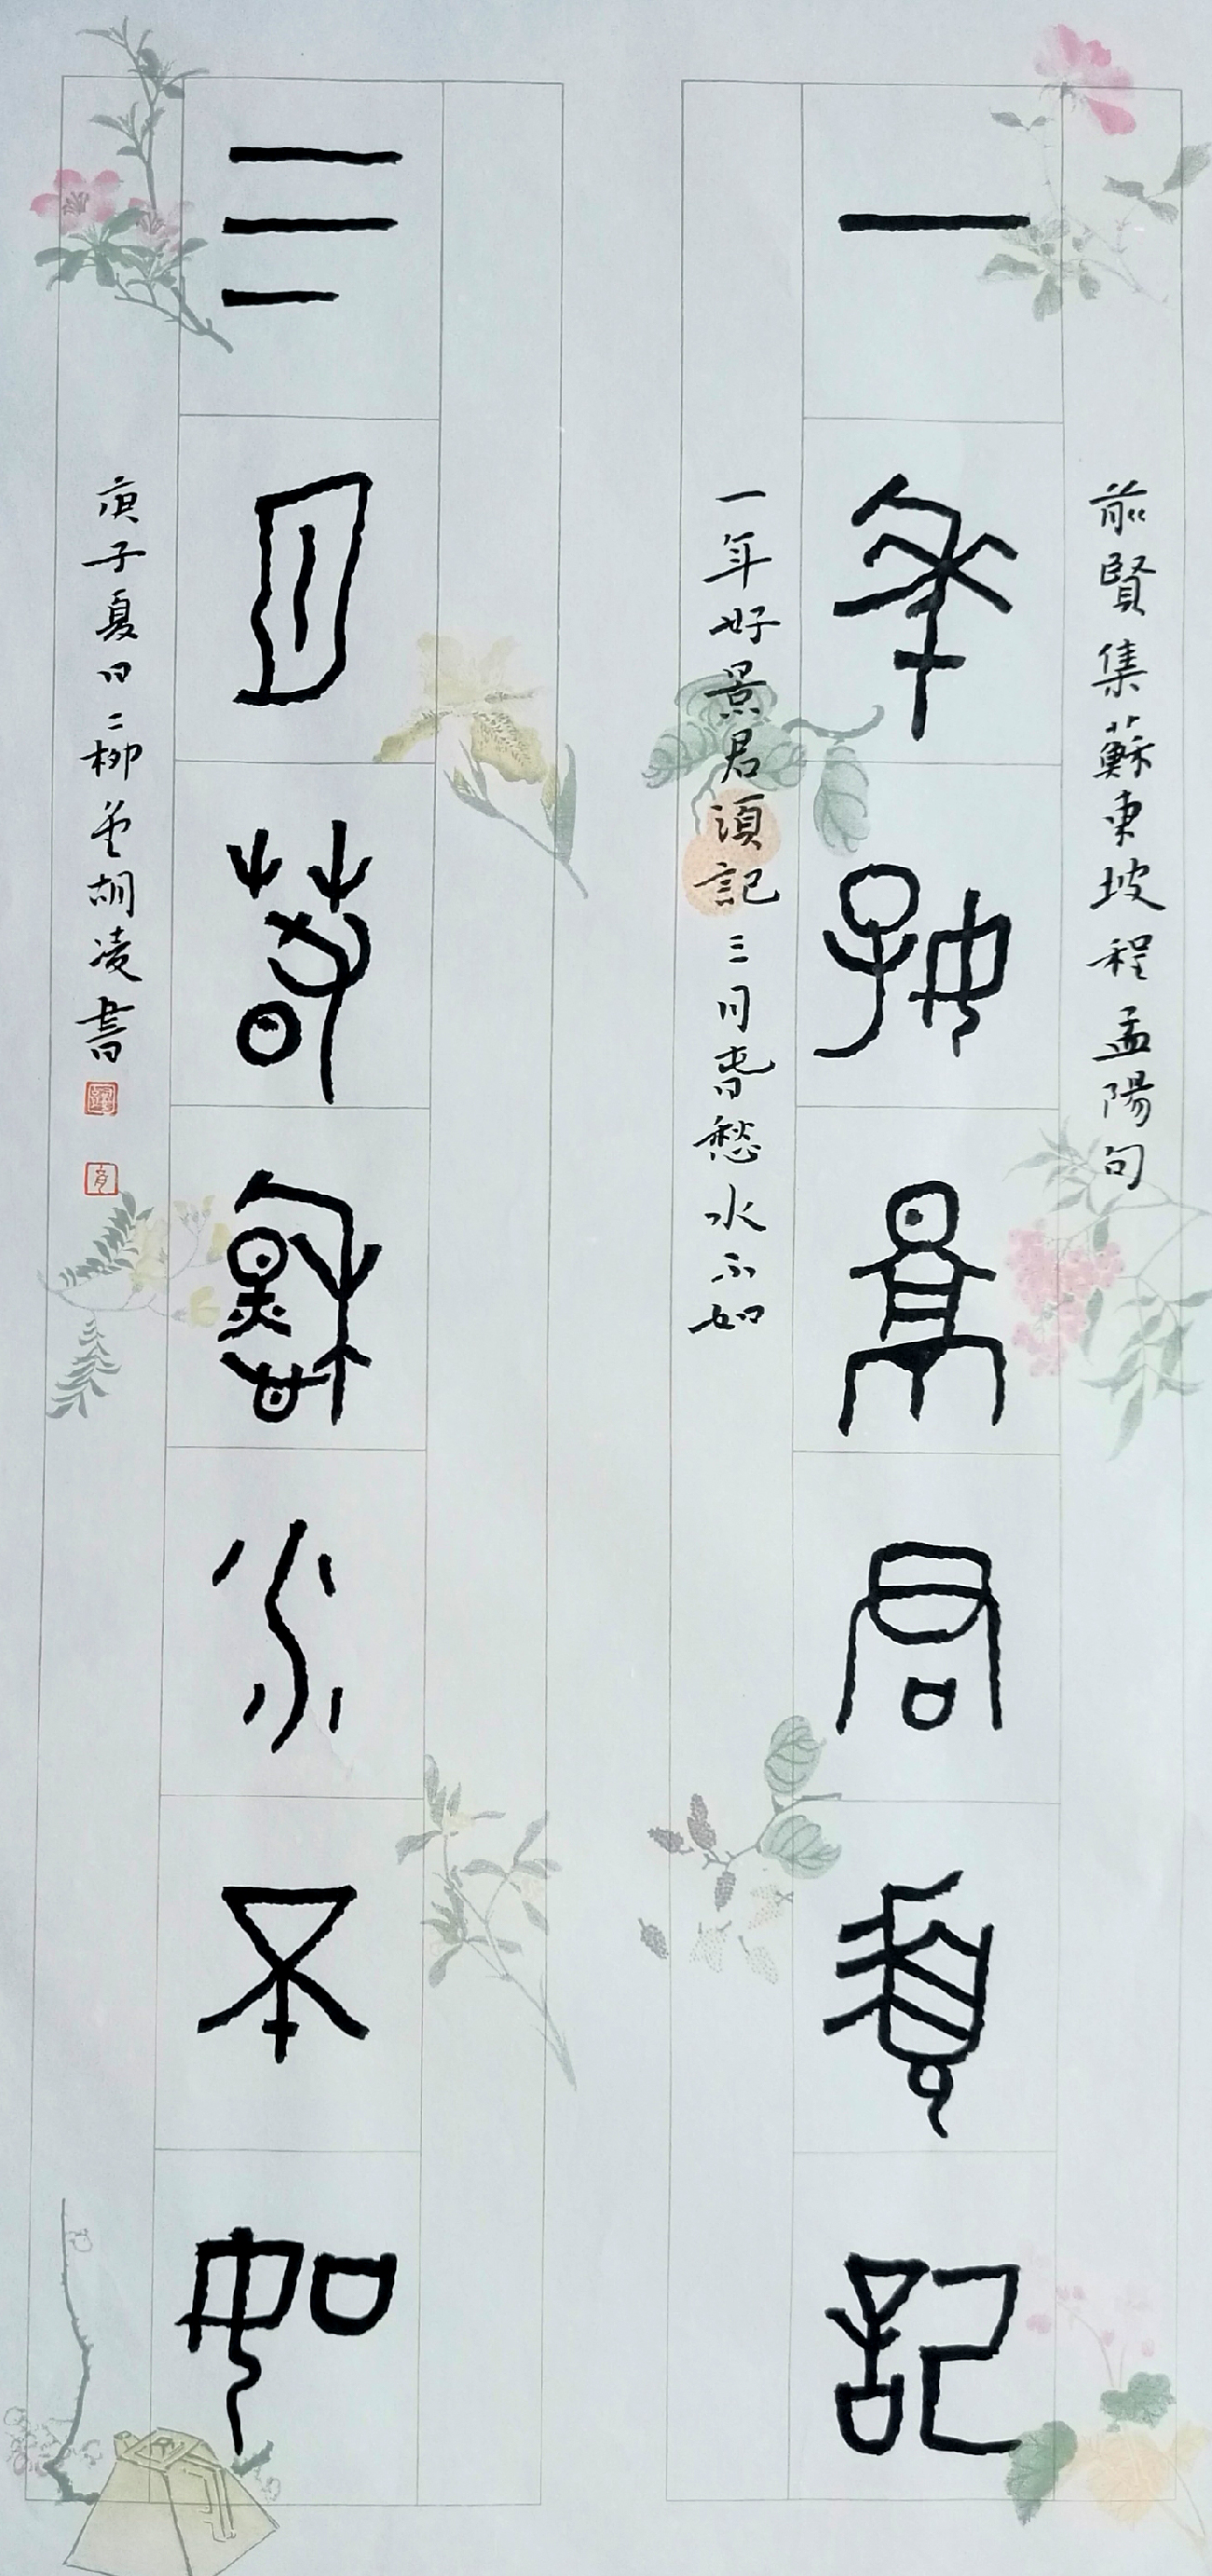 前賢集蘇東坡程孟陽句
一年好景君須記
一年好景君須記三月春愁水不如
三月春愁水不如
庚子夏日二柳堂胡凌書